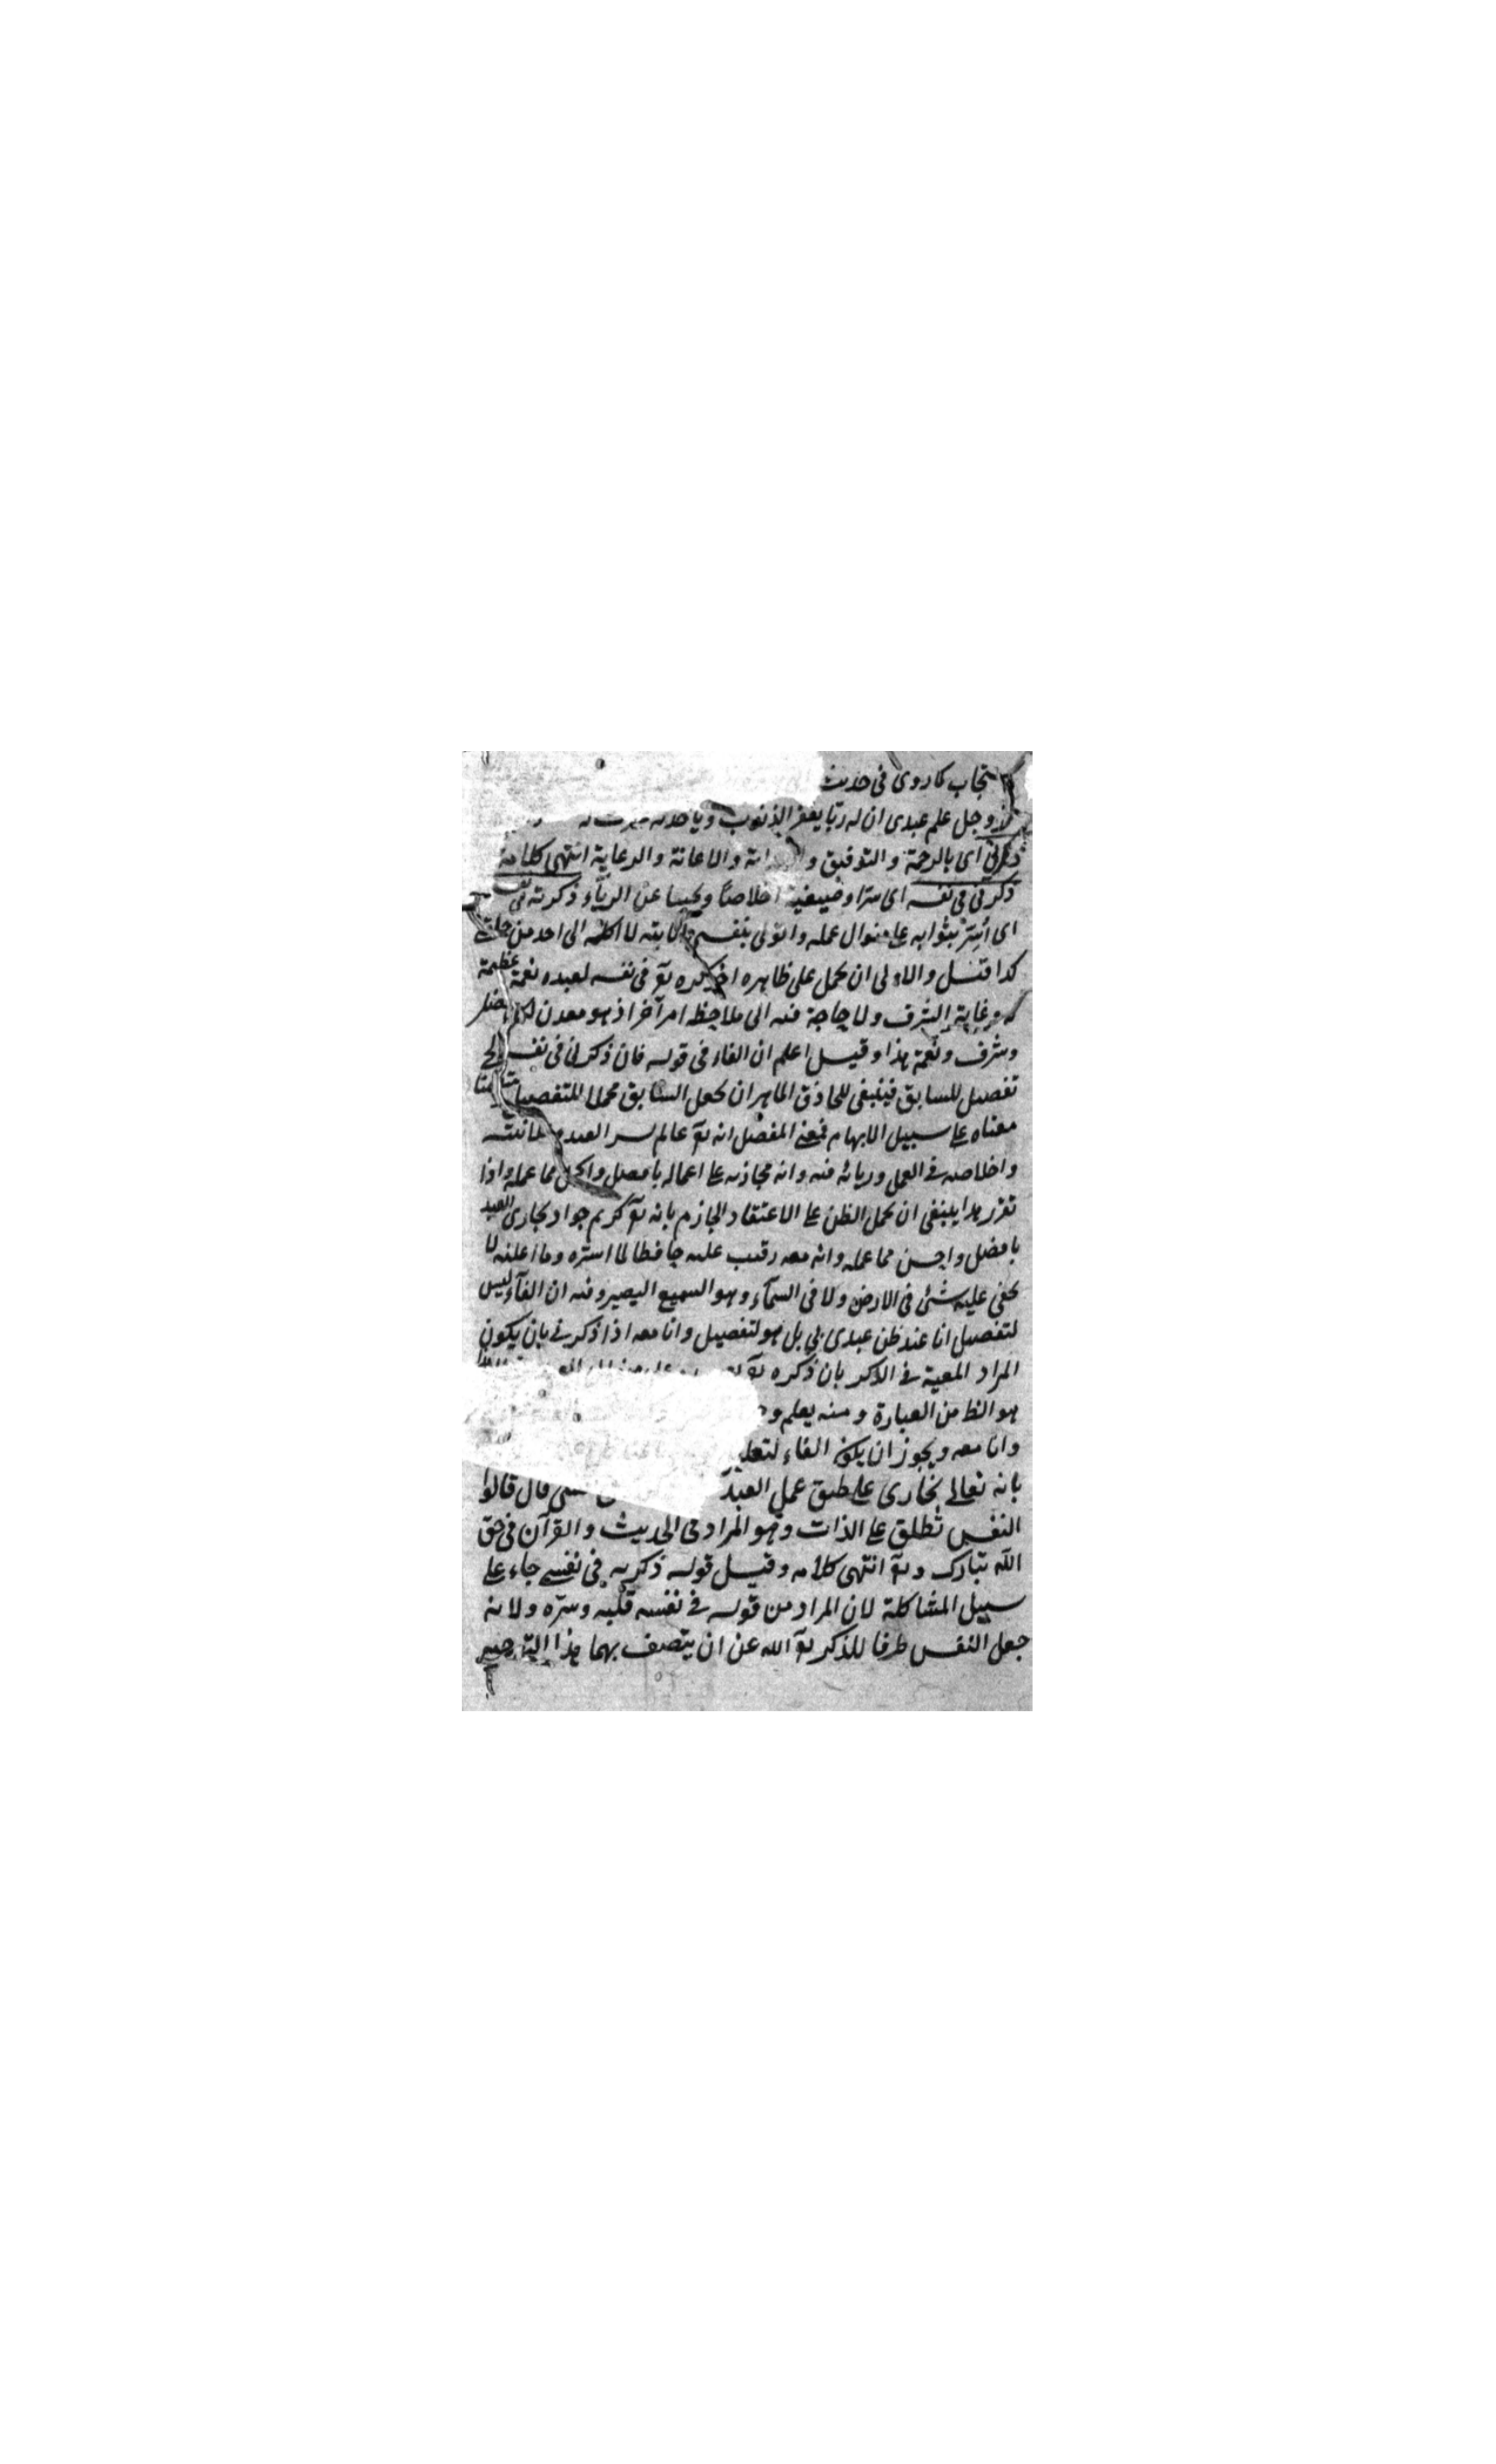 تجاب كما روى في حديث
عز وجل علم عبدى ان له ربا يغفر الذنوب وياخذ به
ذكرني اى بالرحمة والتوفيق و والاعانة والرعاية انتهى كلامه
ذكرني في نفسه اى سرا وخفية اخلاصا وتجنبا عن الرياء ذكرته في
اى أسر بثوابه على منوال عمله واتولى بنفسي اثابته لا اكله الى احد من خلقى
كذا قيل والاولى ان يحمل على ظاهره اذ ذكره تع في نفسه لعبده نعمة عظيمة
له وغاية الشرف ولا حاجة فيه الى ملاحظة امر آخر اذ هو معدن
وشرف ونعمة هذا وقيل اعلم ان الفاء في قوله فان ذكرني في نفسه الخ
تفصيل للسابق فينبغى للحاذق الماهر ان يجعل السابق مجملا للتفصيل
معناه على سبيل الابهام فمعنى المفصل انه تع عالم سر العبد
واخلاصه في العمل وريائه فيه وانه مجازيه على اعماله بافضل واكمل مما عمله واذا
تقرر هذا ينبغى ان يحمل الظن على الاعتقاد الجازم بانه تع كريم جواد يجازى العبد
بافضل واحسن مما عمله وانه معه رقيب عليه حافظا لما اسره وما اعلنه لا
يخفى عليه شئ في الارض ولا في السماء وهو السميع البصير وفيه ان الفاء ليس
لتفصيل انا عند ظن عبدى بي بل هو لتفصيل وانا معه اذا ذكرني بان يكون
المراد المعية في الذكر بان ذكره تع
هو الظ من العبارة ومنه يعلم
وانا معه ويجوز ان يكون الفاء
بانه تعالى يجازى على طبق عمل العبد قال قالوا
النفس تطلق على الذات وهو المراد في الحديث والقرآن في حق
الله تبارك وتع انتهى كلامه وقيل قوله ذكرته في نفسى جاء على
سبيل المشاكلة لان المراد من قوله في نفسه قلبه وسره ولانه
جعل النفس ظرفا للذكر تع الله عن ان يتصف بهما هذا